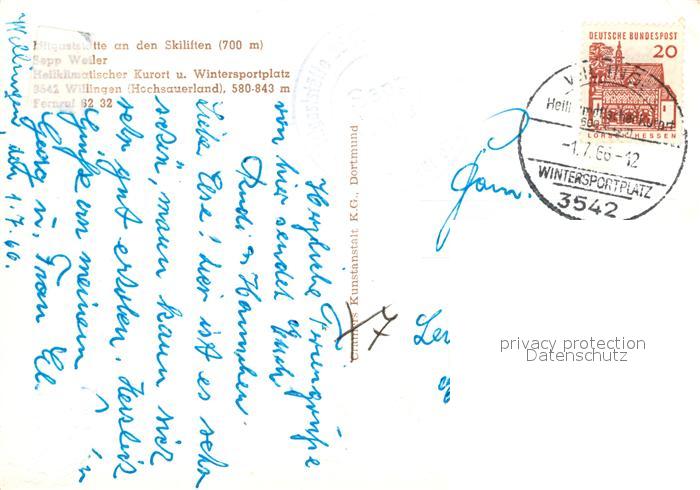 Hüttengaststätte an den Skiliften (700 m)
Sepp Weiler
Heilklimatischer Kurort u. Wintersportplatz
3542 Willingen (Hochsauerland), 580-843 m
Fernruf 62 32
Willingen, den 1.7.66.
Herzliche Feriengrüße
von hier sendet Euch
Rudi u. Hannchen
Liebe Else! hier ist es sehr
schön, man kann sich
sehr gut erholen. Herzlich
Grüße von meinem
Georg u. Frau El.
Kunstanstalt K.G., Dortmund
Fam.
DEUTSCHE BUNDESPOST
20
LORSCH/HESSEN
WILLINGEN
Heilklimatischer Kurort
-1.7.66-12
WINTERSPORTPLATZ
3542
privacy protection
Datenschutz